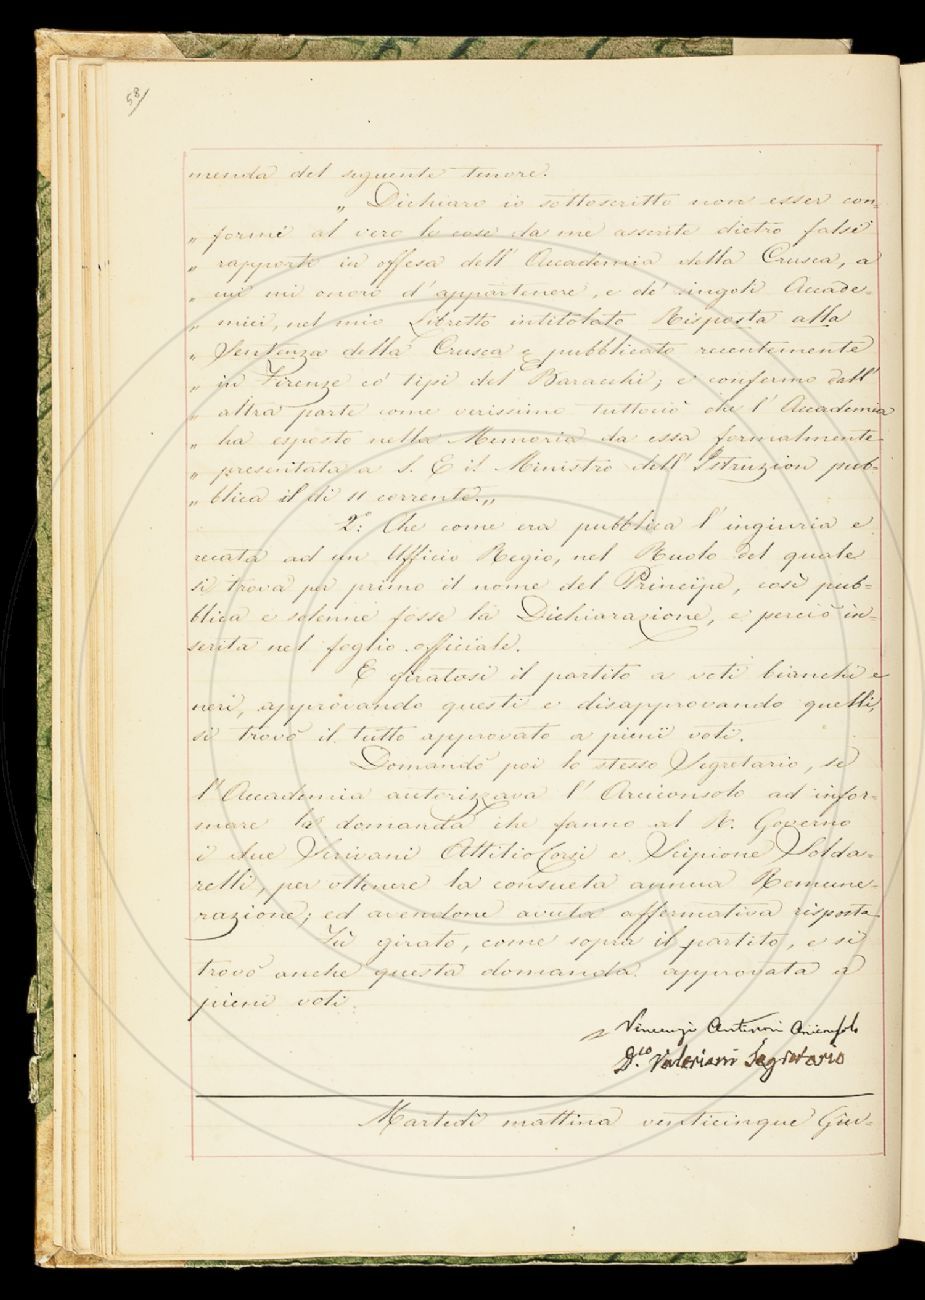 58
menda del seguente tenore.
„ Dichiaro io sottoscritto non esser con=
„ formi al vero le cose da me asserite dietro falsi
„ rapporti in offesa dell' Accademia della Crusca, a
„ cui mi onoro d'appartenere, e de' singoli Accade=
„ mici, nel mio Libretto intitolato Risposta alla
„ Sentenza della Crusca e pubblicato recentemente
„ in Firenze co' tipi del Baracchi; e confermo dall'
„ altra parte come verissimo tuttociò che l' Accademia
„ ha esposto nella Memoria da essa formalmente
„ presentata a S. E il Ministro dell' Istruzion pub=
„ blica il dì 11 corrente.„
2°: Che come era pubblica l' ingiuria e
recata ad un Uffizio Regio, nel Ruolo del quale
si trova per primo il nome del Principe, così pub=
blica e solenne fosse la Dichiarazione, e perciò in=
serita nel foglio officiale.
E giratosi il partito a voti bianchi e
neri, approvando questi e disapprovando quelli,
si trovò il tutto approvato a pieni voti.
Domandò poi lo stesso Segretario, se
l' Accademia autorizzava l' Arciconsolo ad infor=
mare la domanda che fanno al R. Governo
i due Scrivani Attilio Corsi e Scipione Solda=
relli, per ottenere la consueta annua Remune=
razione; ed avendone avuta affermativa risposta
Fù girato, come sopra il partito, e si
trovò anche questa domanda approvata a
pieni voti.
Vincenzio Antinori Arciconsolo
D.co Valeriani Segretario
Martedì mattina venticinque Giu=